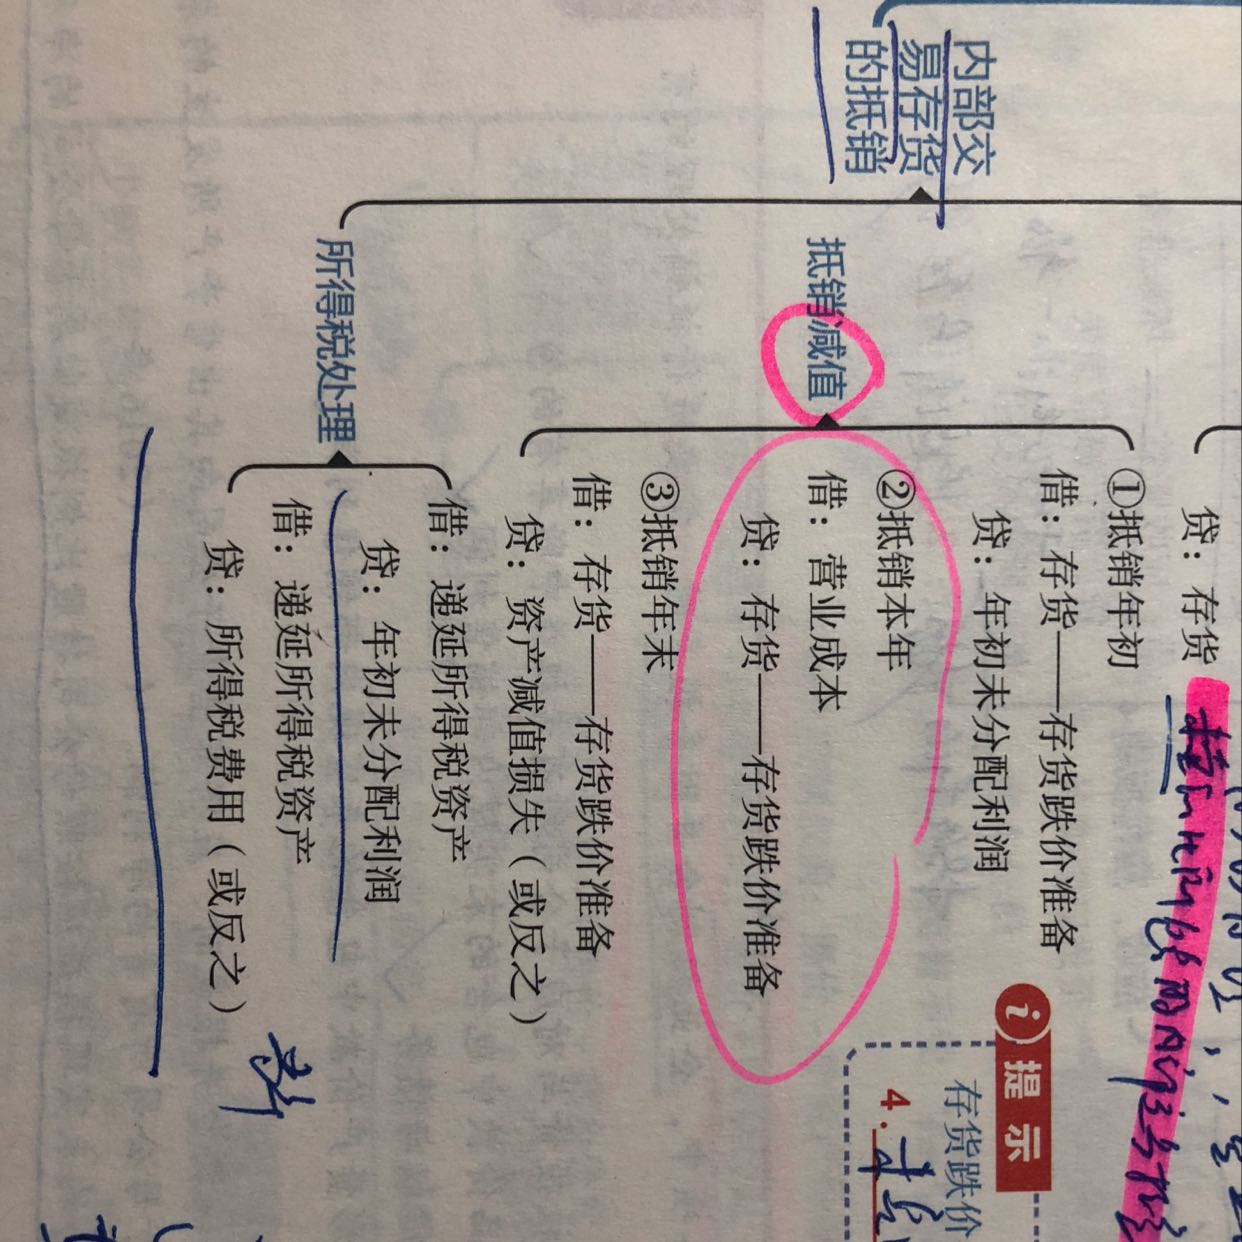 内部交
易存货
的抵销
贷：存货
抵销减值
①抵销年初
借：存货——存货跌价准备
贷：年初未分配利润
②抵销本年
借：营业成本
贷：存货——存货跌价准备
③抵销年末
借：存货——存货跌价准备
贷：资产减值损失（或反之）
所得税处理
借：递延所得税资产
贷：年初未分配利润
借：递延所得税资产
贷：所得税费用（或反之）
提示
存货跌价
4.